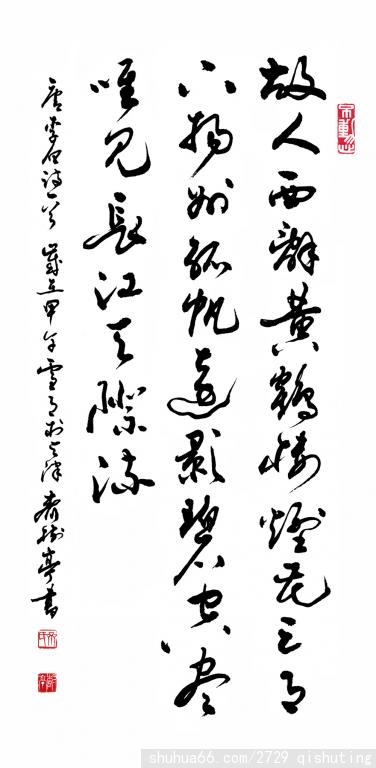 故人西辭黃鶴樓煙花三月
下揚州孤帆遠影碧空盡
唯見長江天際流
唐李白詩一首 歲在甲午雪月於天津齊樹亭書
shuhua66.com/2729 qishuting